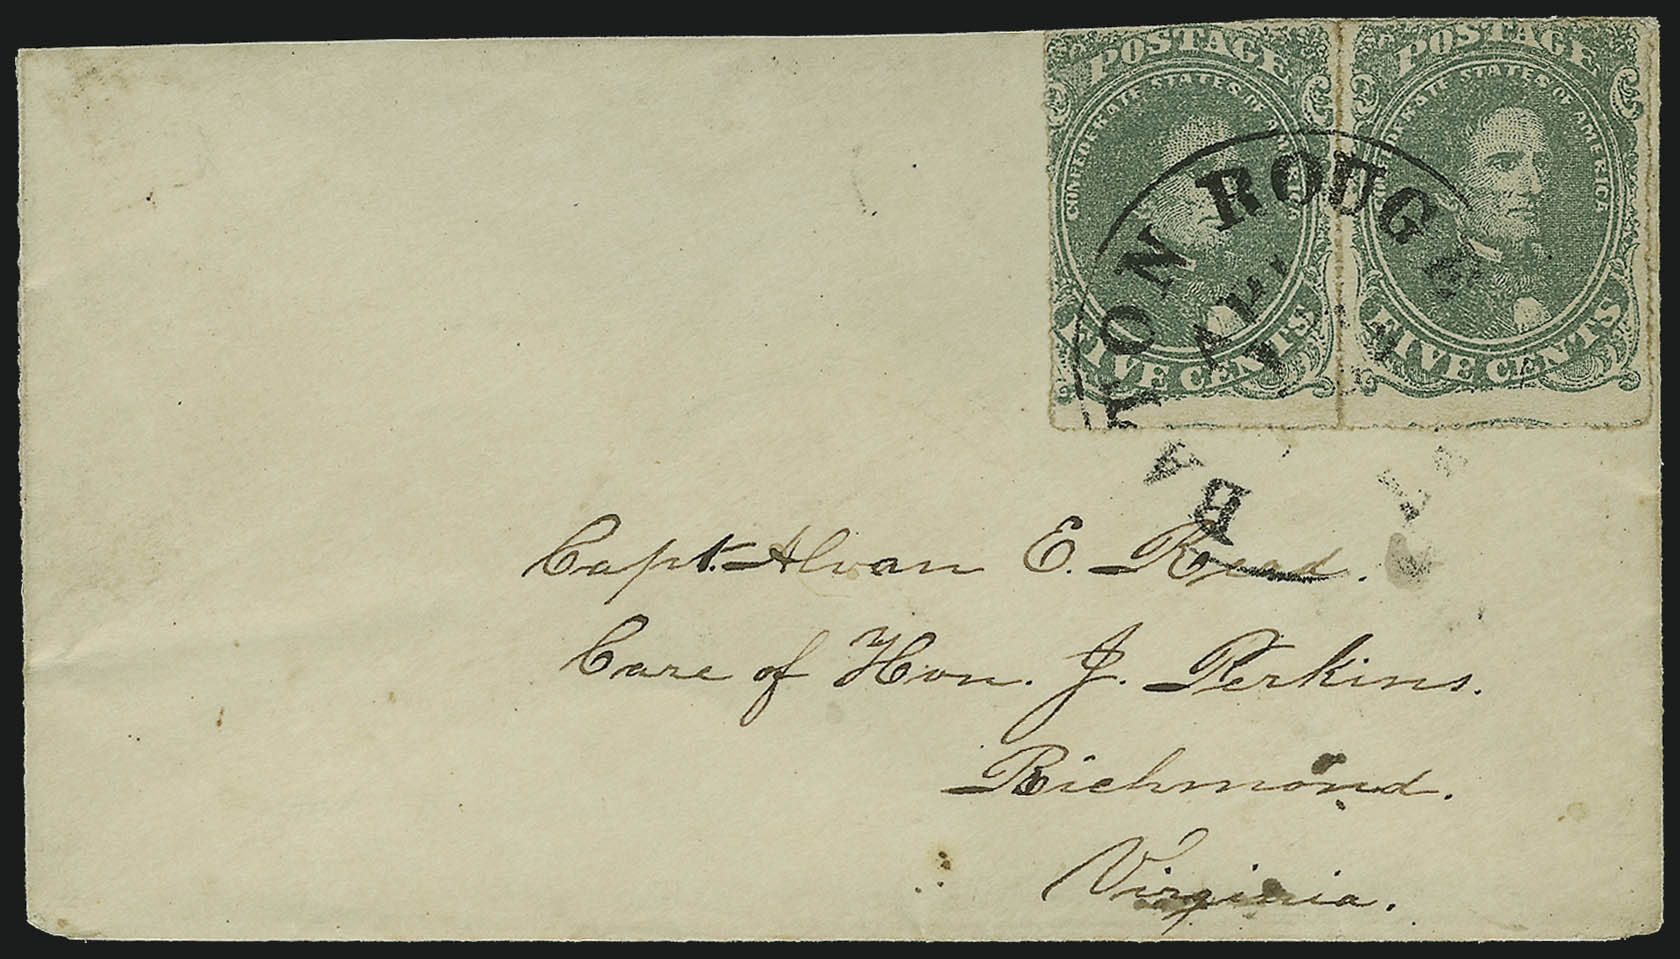 POSTAGE POSTAGE
CONFEDERATE STATES OF AMERICA STATES OF AMERICA
BATON ROUGE
LA
FIVE CENTS FIVE CENTS
Capt. Alvan E. Read.
Care of Hon. J. Perkins.
Richmond.
Virginia.